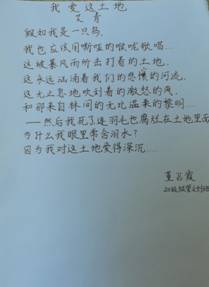 我爱这土地
艾青
假如我是一只鸟,
我也应该用嘶哑的喉咙歌唱
这被暴风雨所击打着的土地,
这永远汹涌着我们的悲愤的河流,
这无止息地吹刮着的激怒的风,
和那来自林间的无比温柔的黎明……
——然后我死了,连羽毛也腐烂在土地里面
为什么我眼里常含泪水?
因为我对这土地爱得深沉……